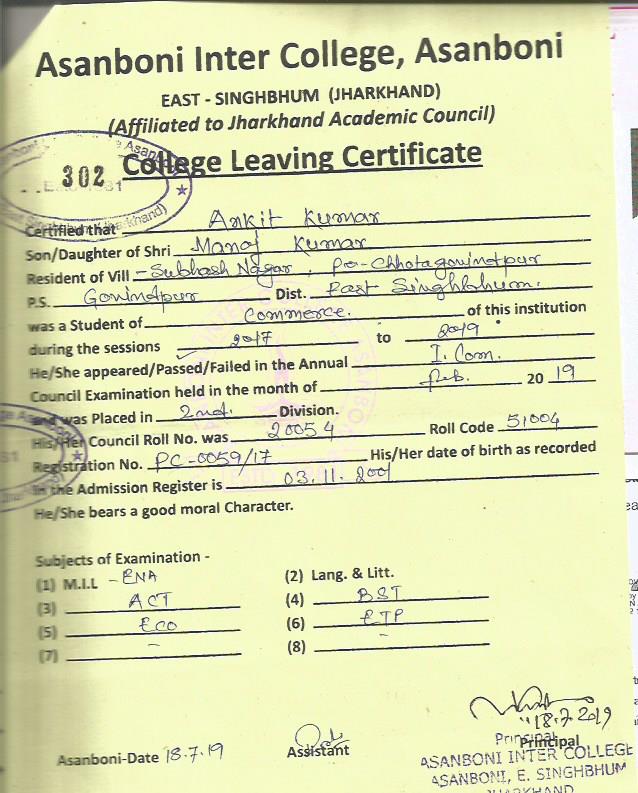 Asanboni Inter College, Asanboni
EAST - SINGHBHUM (JHARKHAND)
(Affiliated to Jharkhand Academic Council)
302 College Leaving Certificate
Certified that Ankit Kumar
Son/Daughter of Shri Manoj Kumar
Resident of Vill - Subhash Nagar, Po-Chhotagovindpur
P.S. Govindpur Dist. East Singhbhum.
was a Student of Commerce. of this institution
during the sessions 2017 to 2019
He/She appeared/Passed/Failed in the Annual I. Com.
Council Examination held in the month of Feb. 20 19
and was Placed in 2nd. Division.
His/Her Council Roll No. was 20054 Roll Code 51004
Registration No. PC-0059/17 His/Her date of birth as recorded
in the Admission Register is 03.11.2001
He/She bears a good moral Character.
Subjects of Examination -
(1) M.I.L - ENA (2) Lang. & Litt.
(3) ACT (4) BST
(5) ECO (6) ETP
(7) - (8) -
18.7.2019
Asanboni-Date 18.7.19 Assistant Principal
Principal
ASANBONI INTER COLLEGE
ASANBONI, E. SINGHBHUM
JHARKHAND